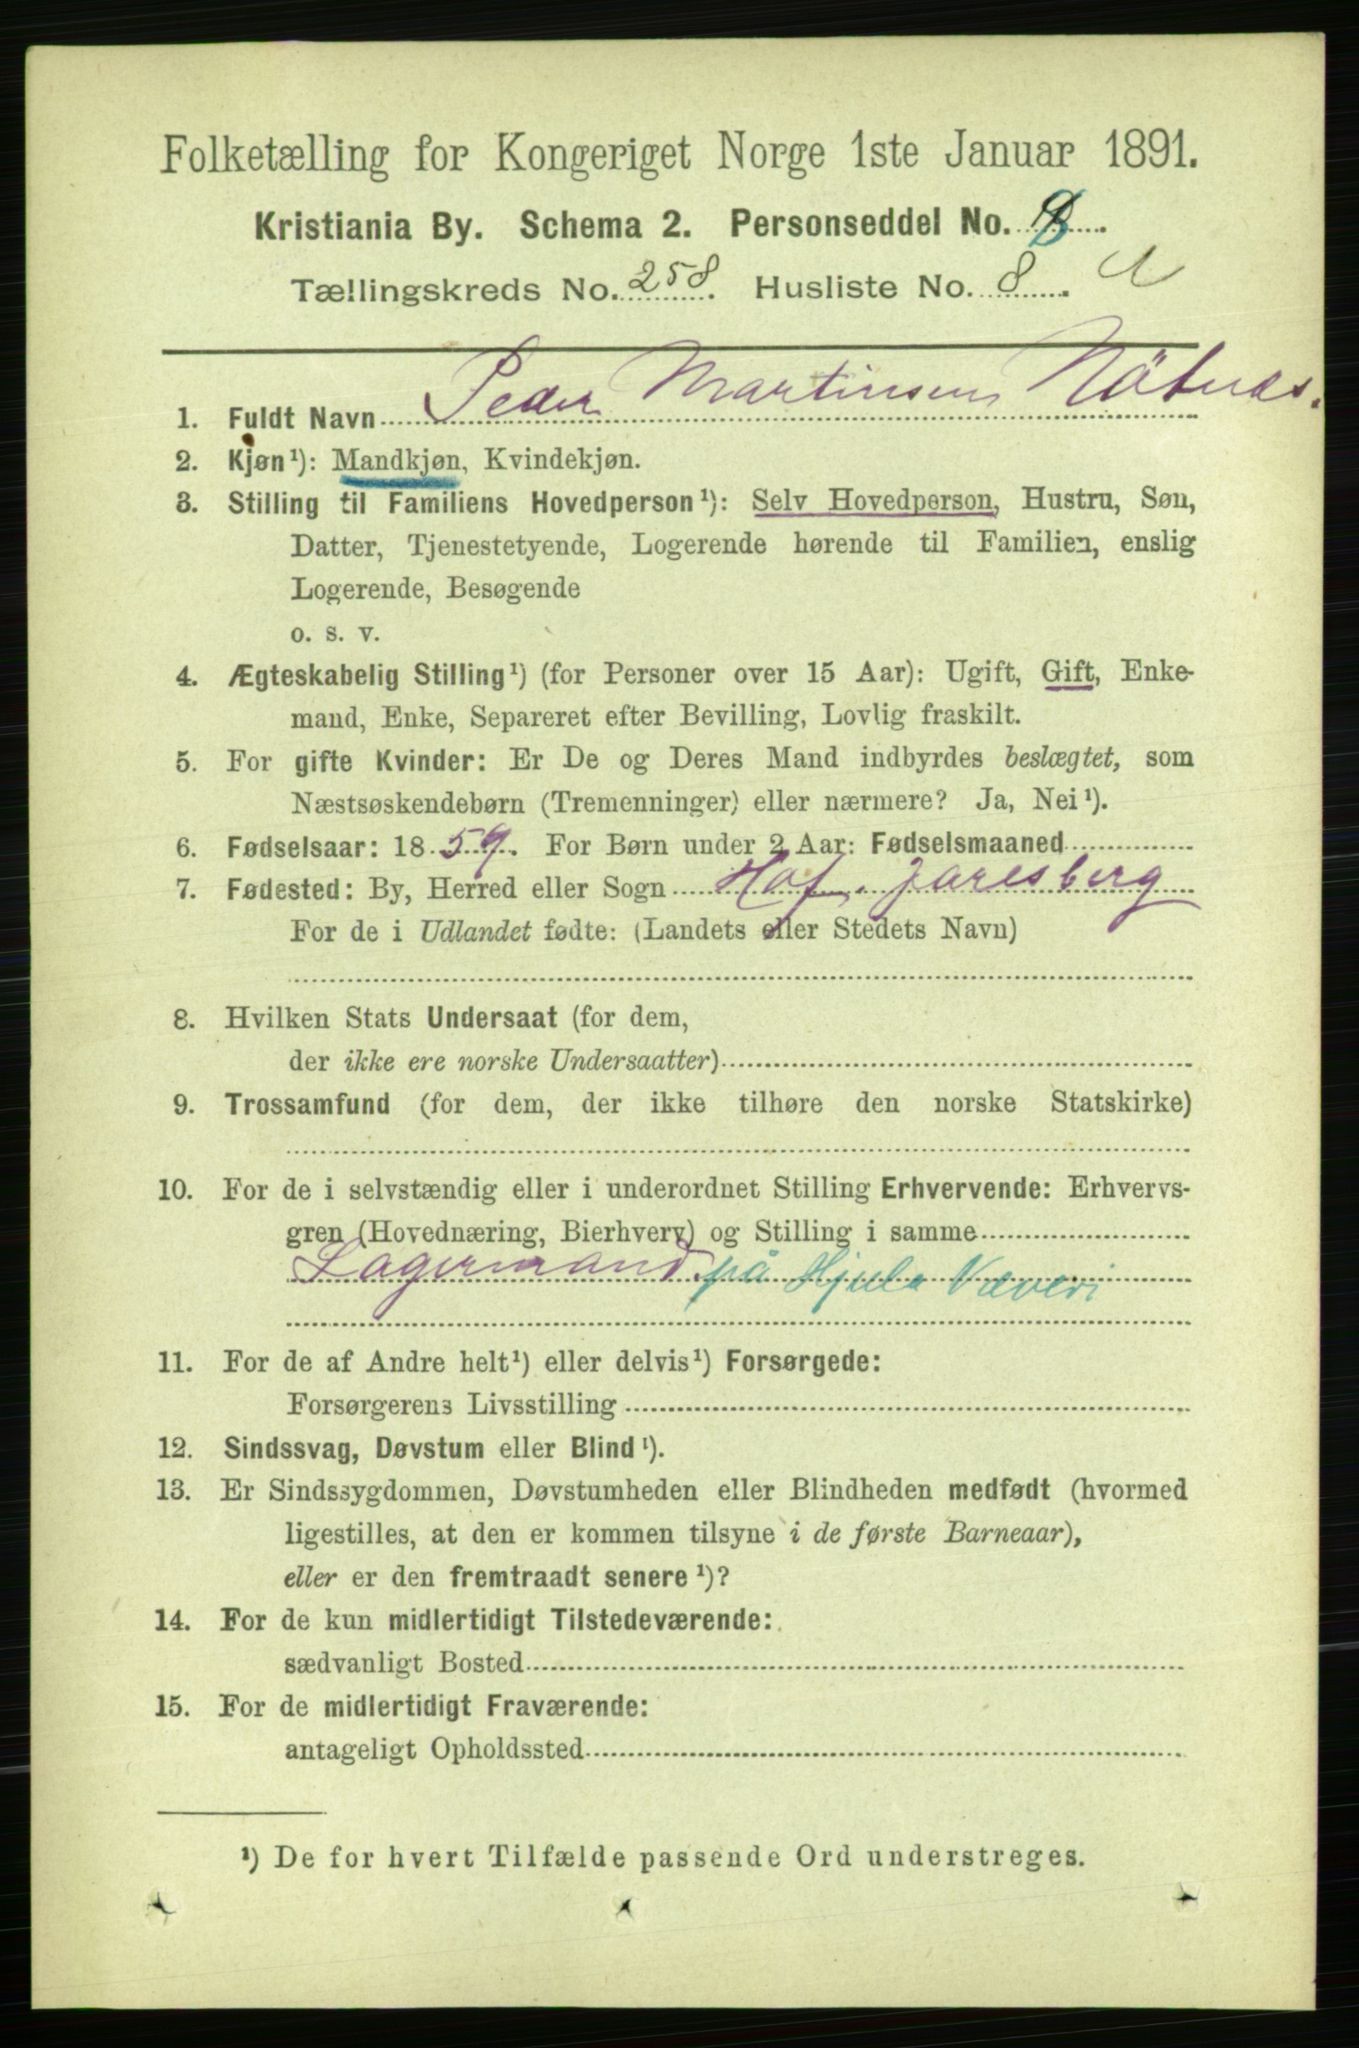 Folketælling for Kongeriget Norge 1ste Januar 1891.
Kristiania By. Schema 2. Personseddel No.
Tællingskreds No. 258. Husliste No. 8.
1. Fuldt Navn Peder Martinsen Nötnæs.
2. Kjøn¹): Mandkjøn, Kvindekjøn.
3. Stilling til Familiens Hovedperson¹): Selv Hovedperson, Hustru, Søn,
Datter, Tjenestetyende, Logerende hørende til Familien, enslig
Logerende, Besøgende
o. s. v.
4. Ægteskabelig Stilling¹) (for Personer over 15 Aar): Ugift, Gift, Enke-
mand, Enke, Separeret efter Bevilling, Lovlig fraskilt.
5. For gifte Kvinder: Er De og Deres Mand indbyrdes beslægtet, som
Næstsøskendebørn (Tremenninger) eller nærmere? Ja, Nei¹).
6. Fødselsaar: 1859. For Børn under 2 Aar: Fødselsmaaned
7. Fødested: By, Herred eller Sogn Hof. Jarlsberg
For de i Udlandet fødte: (Landets eller Stedets Navn)
8. Hvilken Stats Undersaat (for dem,
der ikke ere norske Undersaatter)
9. Trossamfund (for dem, der ikke tilhøre den norske Statskirke)
10. For de i selvstændig eller i underordnet Stilling Erhvervende: Erhvervs-
gren (Hovednæring, Bierhverv) og Stilling i samme
Lagermand på Hjula Væveri
11. For de af Andre helt¹) eller delvis¹) Forsørgede:
Forsørgerens Livsstilling
12. Sindssvag, Døvstum eller Blind¹).
13. Er Sindssygdommen, Døvstumheden eller Blindheden medfødt (hvormed
ligestilles, at den er kommen tilsyne i de første Barneaar),
eller er den fremtraadt senere¹)?
14. For de kun midlertidigt Tilstedeværende:
sædvanligt Bosted
15. For de midlertidigt Fraværende:
antageligt Opholdssted
¹) De for hvert Tilfælde passende Ord understreges.